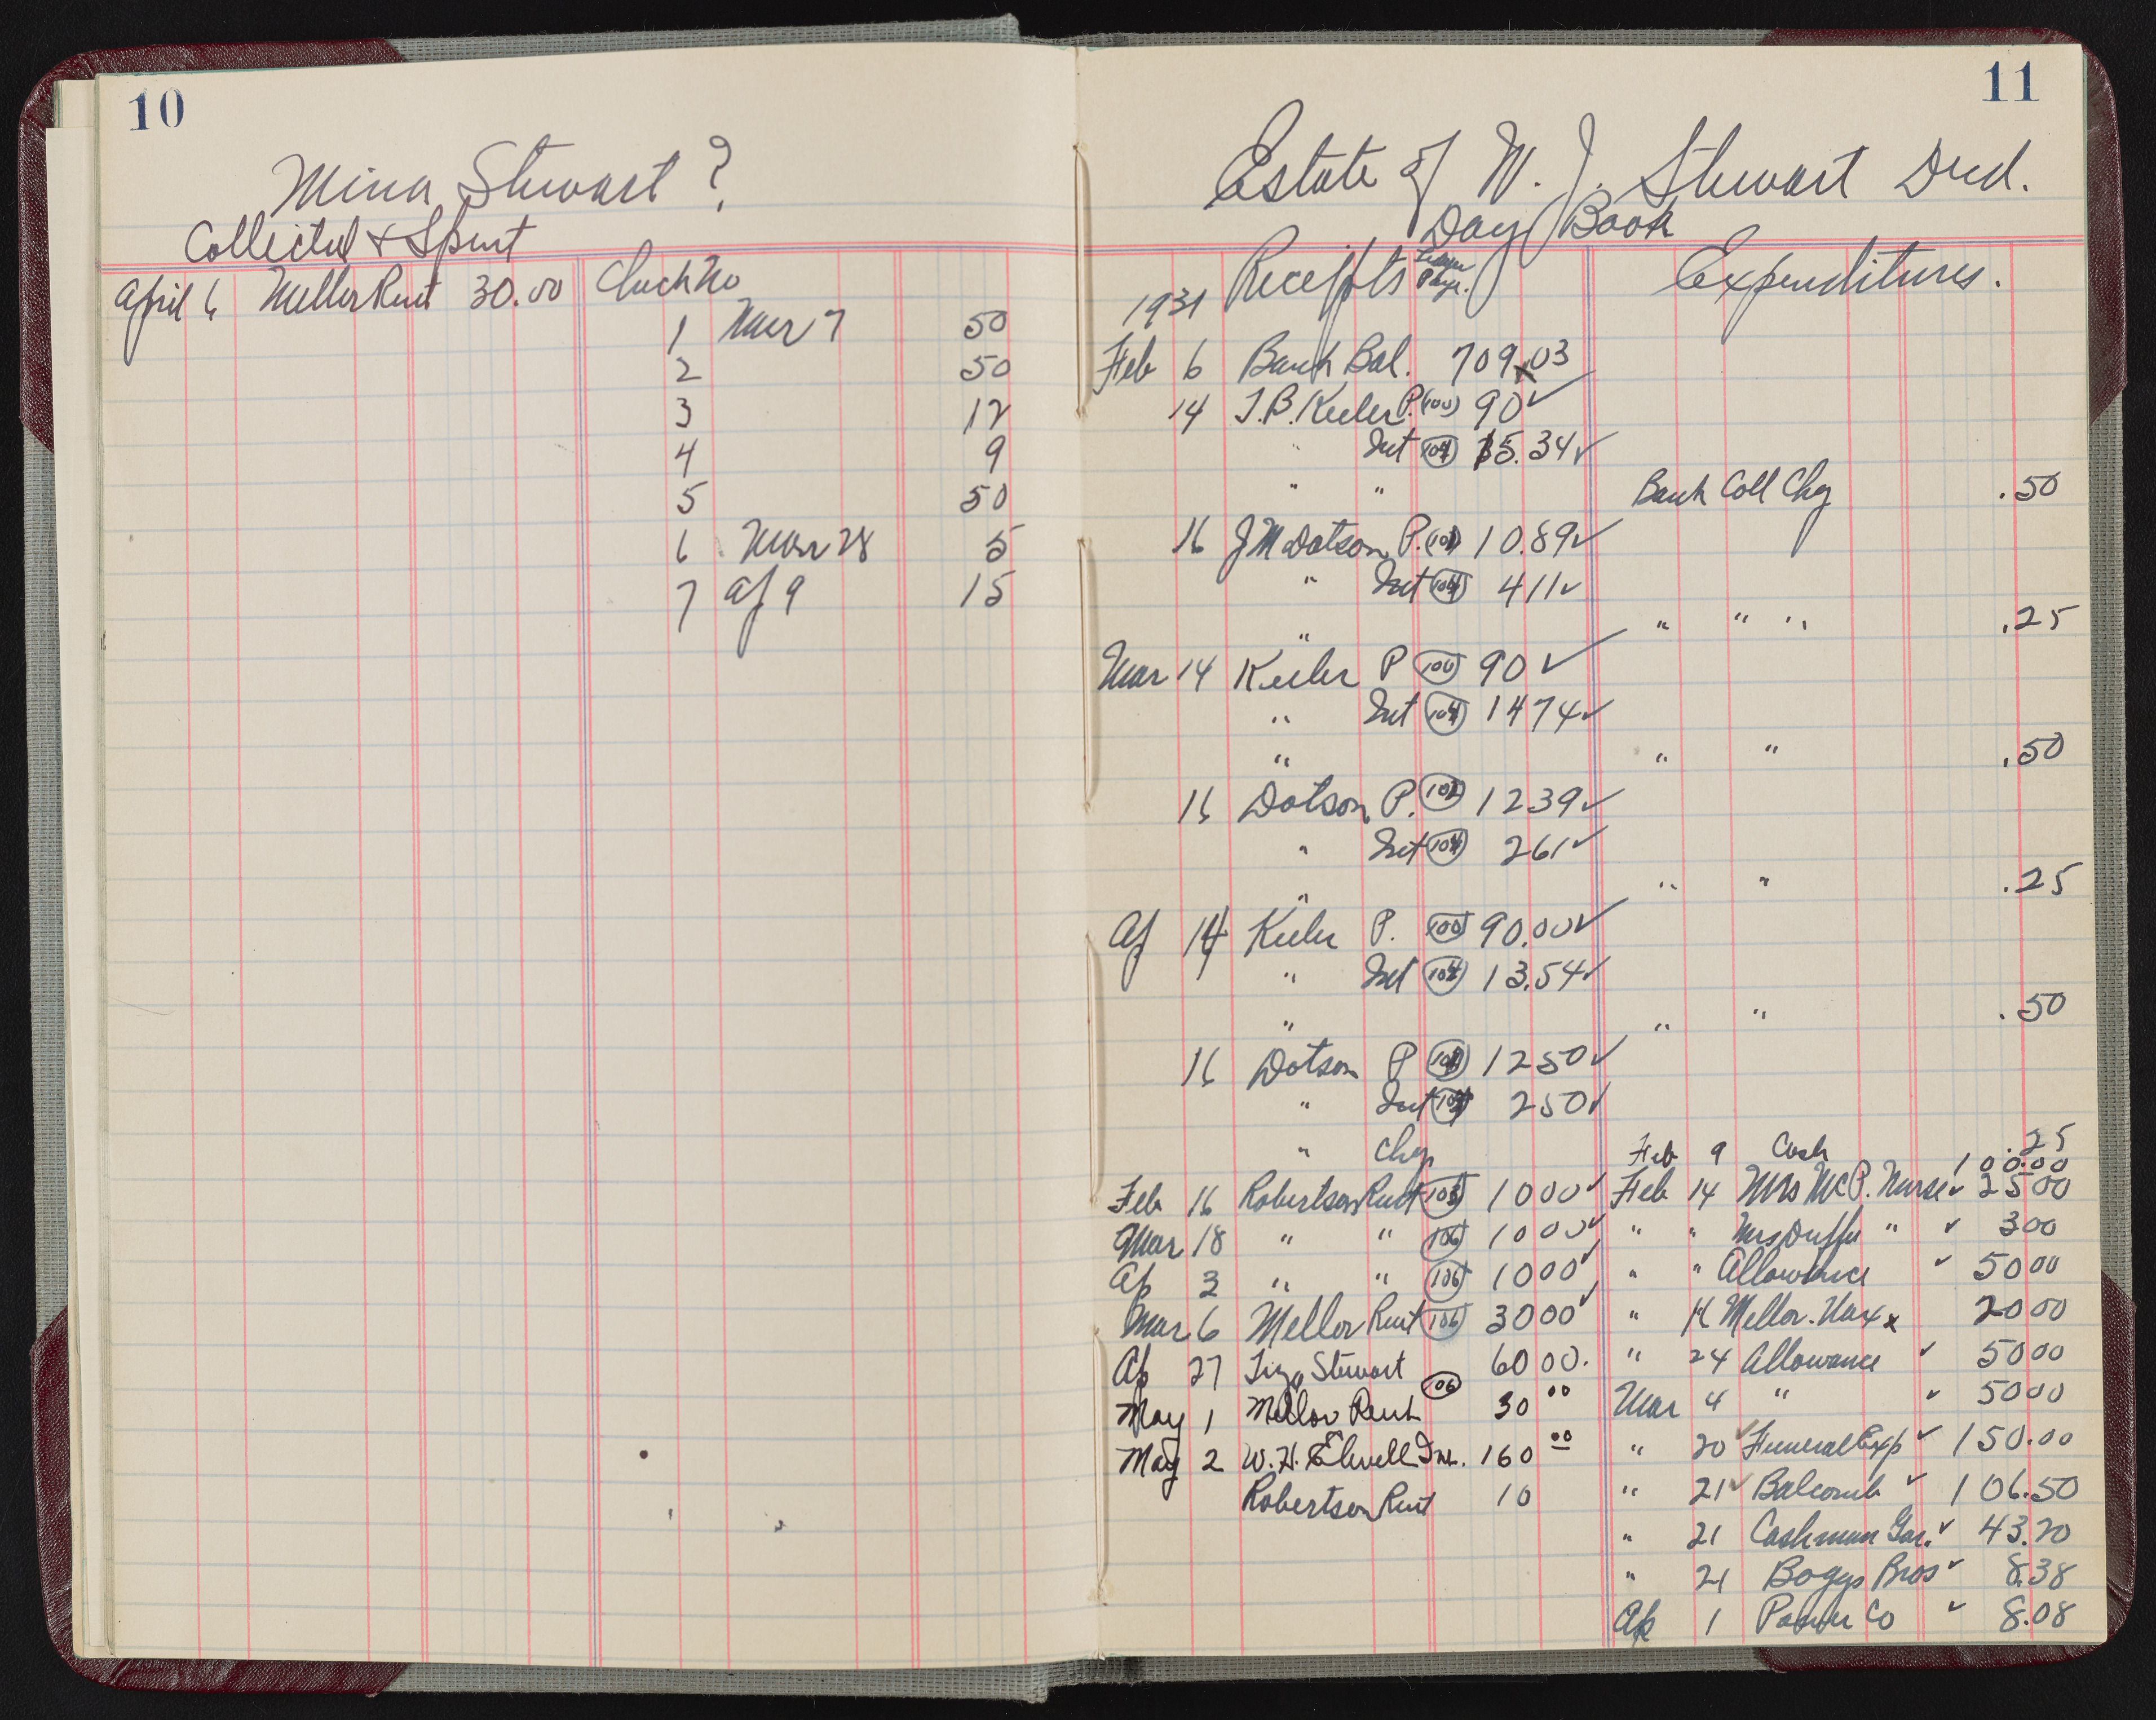 10
Mina Stewart ?
Collected & Spent
April 6 Mellor Rent 30.00 Check No
1 Mar 7 50
2 50
3 12
4 9
5 50
6 Mar 28 5
7 Ap 9 15
11
Estate of W. J. Stewart Decd.
Day Book
Receipts Ledger Page. Expenditures.
1931
Feb 6 Bank Bal. 709.03
14 J.B. Keeler P. (100) 90 ✓
" Int (104) 15.34 ✓
" " Bank Coll Chg .50
16 J M Dotson P. (101) 10.89 ✓
" Int (104) 4 11 ✓
" " " " .25
Mar 14 Keeler P (100) 90 ✓
" Int (104) 14 74 ✓
" " " .50
16 Dotson P. (101) 12 39 ✓
" Int (104) 2 61 ✓
" " " .25
Ap 14 Keeler P. (100) 90.00 ✓
" Int (104) 13.54 ✓
" " " .50
16 Dotson P (101) 12 50 ✓
" Int (104) 2 50 ✓
" Chg .25
Feb 9 Cash 100.00
Feb 16 Robertson Rent (106) 10 00 ✓ Feb 14 Mrs McP. Nurse ✓ 25 00
Mar 18 " " (106) 10 00 ✓ " " Mrs Duffu " ✓ 3 00
Ap 3 " " (106) 10 00 ✓ " " Allowance ✓ 50 00
Mar 6 Mellor Rent (106) 30 00 ✓ " 16 Mellor. x 20 00
Ap 27 Stewart 60 00. " 24 Allowance ✓ 50 00
May 1 Mellor Rent (106) 30 00 Mar 4 " ✓ 50 00
May 2 W. H. Elwell 160 00 " 20 ✓ Funeral Exp ✓ 150.00
Robertson Rent 10 " 21 ✓ Balcomb ✓ 106.50
" 21 Cashman Gar. ✓ 43.20
" 21 Boggs Bros ✓ 8.38
Ap 1 Power Co ✓ 8.08